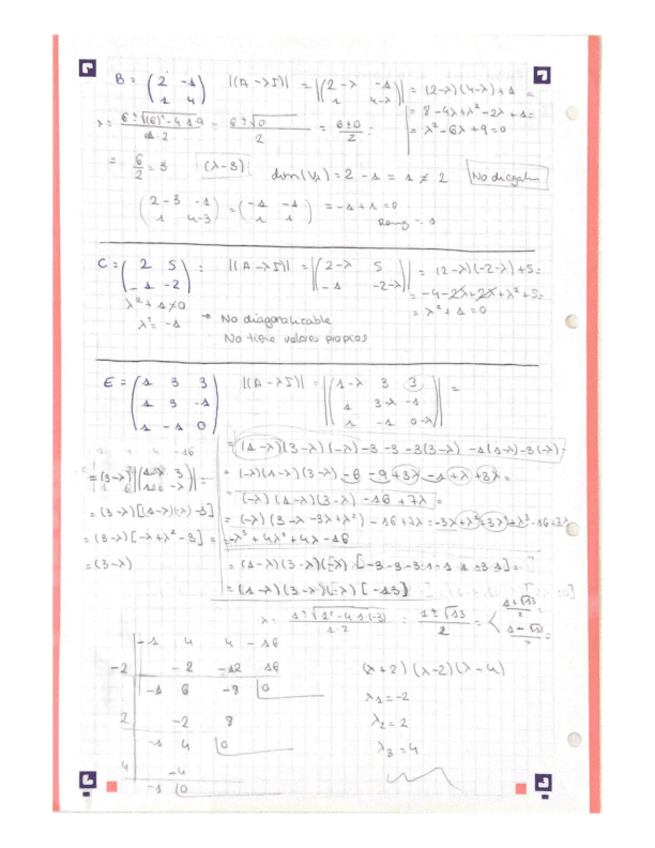 B = (2 -1 / 1 4) |(A - λI)| = |(2-λ -1 / 1 4-λ)| = (2-λ)(4-λ)+1 =
= 8-4λ+λ²-2λ+1=
= λ²-6λ+9=0
λ = 6±√(6)²-4·1·9 / 2 = 6±√0 / 2 = 6±0 / 2 =
= 6/2 = 3 (λ-3) dim(V₁) = 2 - 1 = 1 ≠ 2
(2-3 -1 / 1 4-3) = (-1 -1 / 1 1) = -1+1=0
Rang = 1
C = (2 5 / -1 -2) : |(A - λI)| = |(2-λ 5 / -1 -2-λ)| = (2-λ)(-2-λ)+5=
= -4-2λ+2λ+λ²+5=
= λ²+1=0
λ²+1≠0
λ² = -1 → No diagonalizable
No tiene valores propios
E = (1 3 3 / 1 3 -1 / 1 -1 0) |(A - λI)| = |(1-λ 3 3 / 1 3-λ -1 / 1 -1 0-λ)| =
= (1-λ)(3-λ)(-λ)-3-3-3(3-λ)-1(1-λ)-3(-λ)=
= (-λ)(1-λ)(3-λ)-6-9+3λ-1+λ+3λ=
= (-λ)(1-λ)(3-λ)-16+7λ=
= (-λ)(3-λ-3λ+λ²)-16+7λ=-3λ+λ²+3λ²-λ³-16+7λ
= -λ³+4λ²+4λ-16
= (3-λ)[(1-λ)(-λ)-3]
= (3-λ)[-λ+λ²-3] =
= (3-λ)
= (1-λ)(3-λ)(-λ)[-13]
λ = 1±√1²-4·1·(-3) / 1·2 = 1±√13 / 2 = < 1+√13 / 2
1-√13 / 2
-1 4 4 -16
-2 -2 -12 16
-1 6 -8 0
2 -2 8
-1 4 0
4 -4
-1 0
(λ+2)(λ-2)(λ-4)
λ₁=-2
λ₂=2
λ₃=4